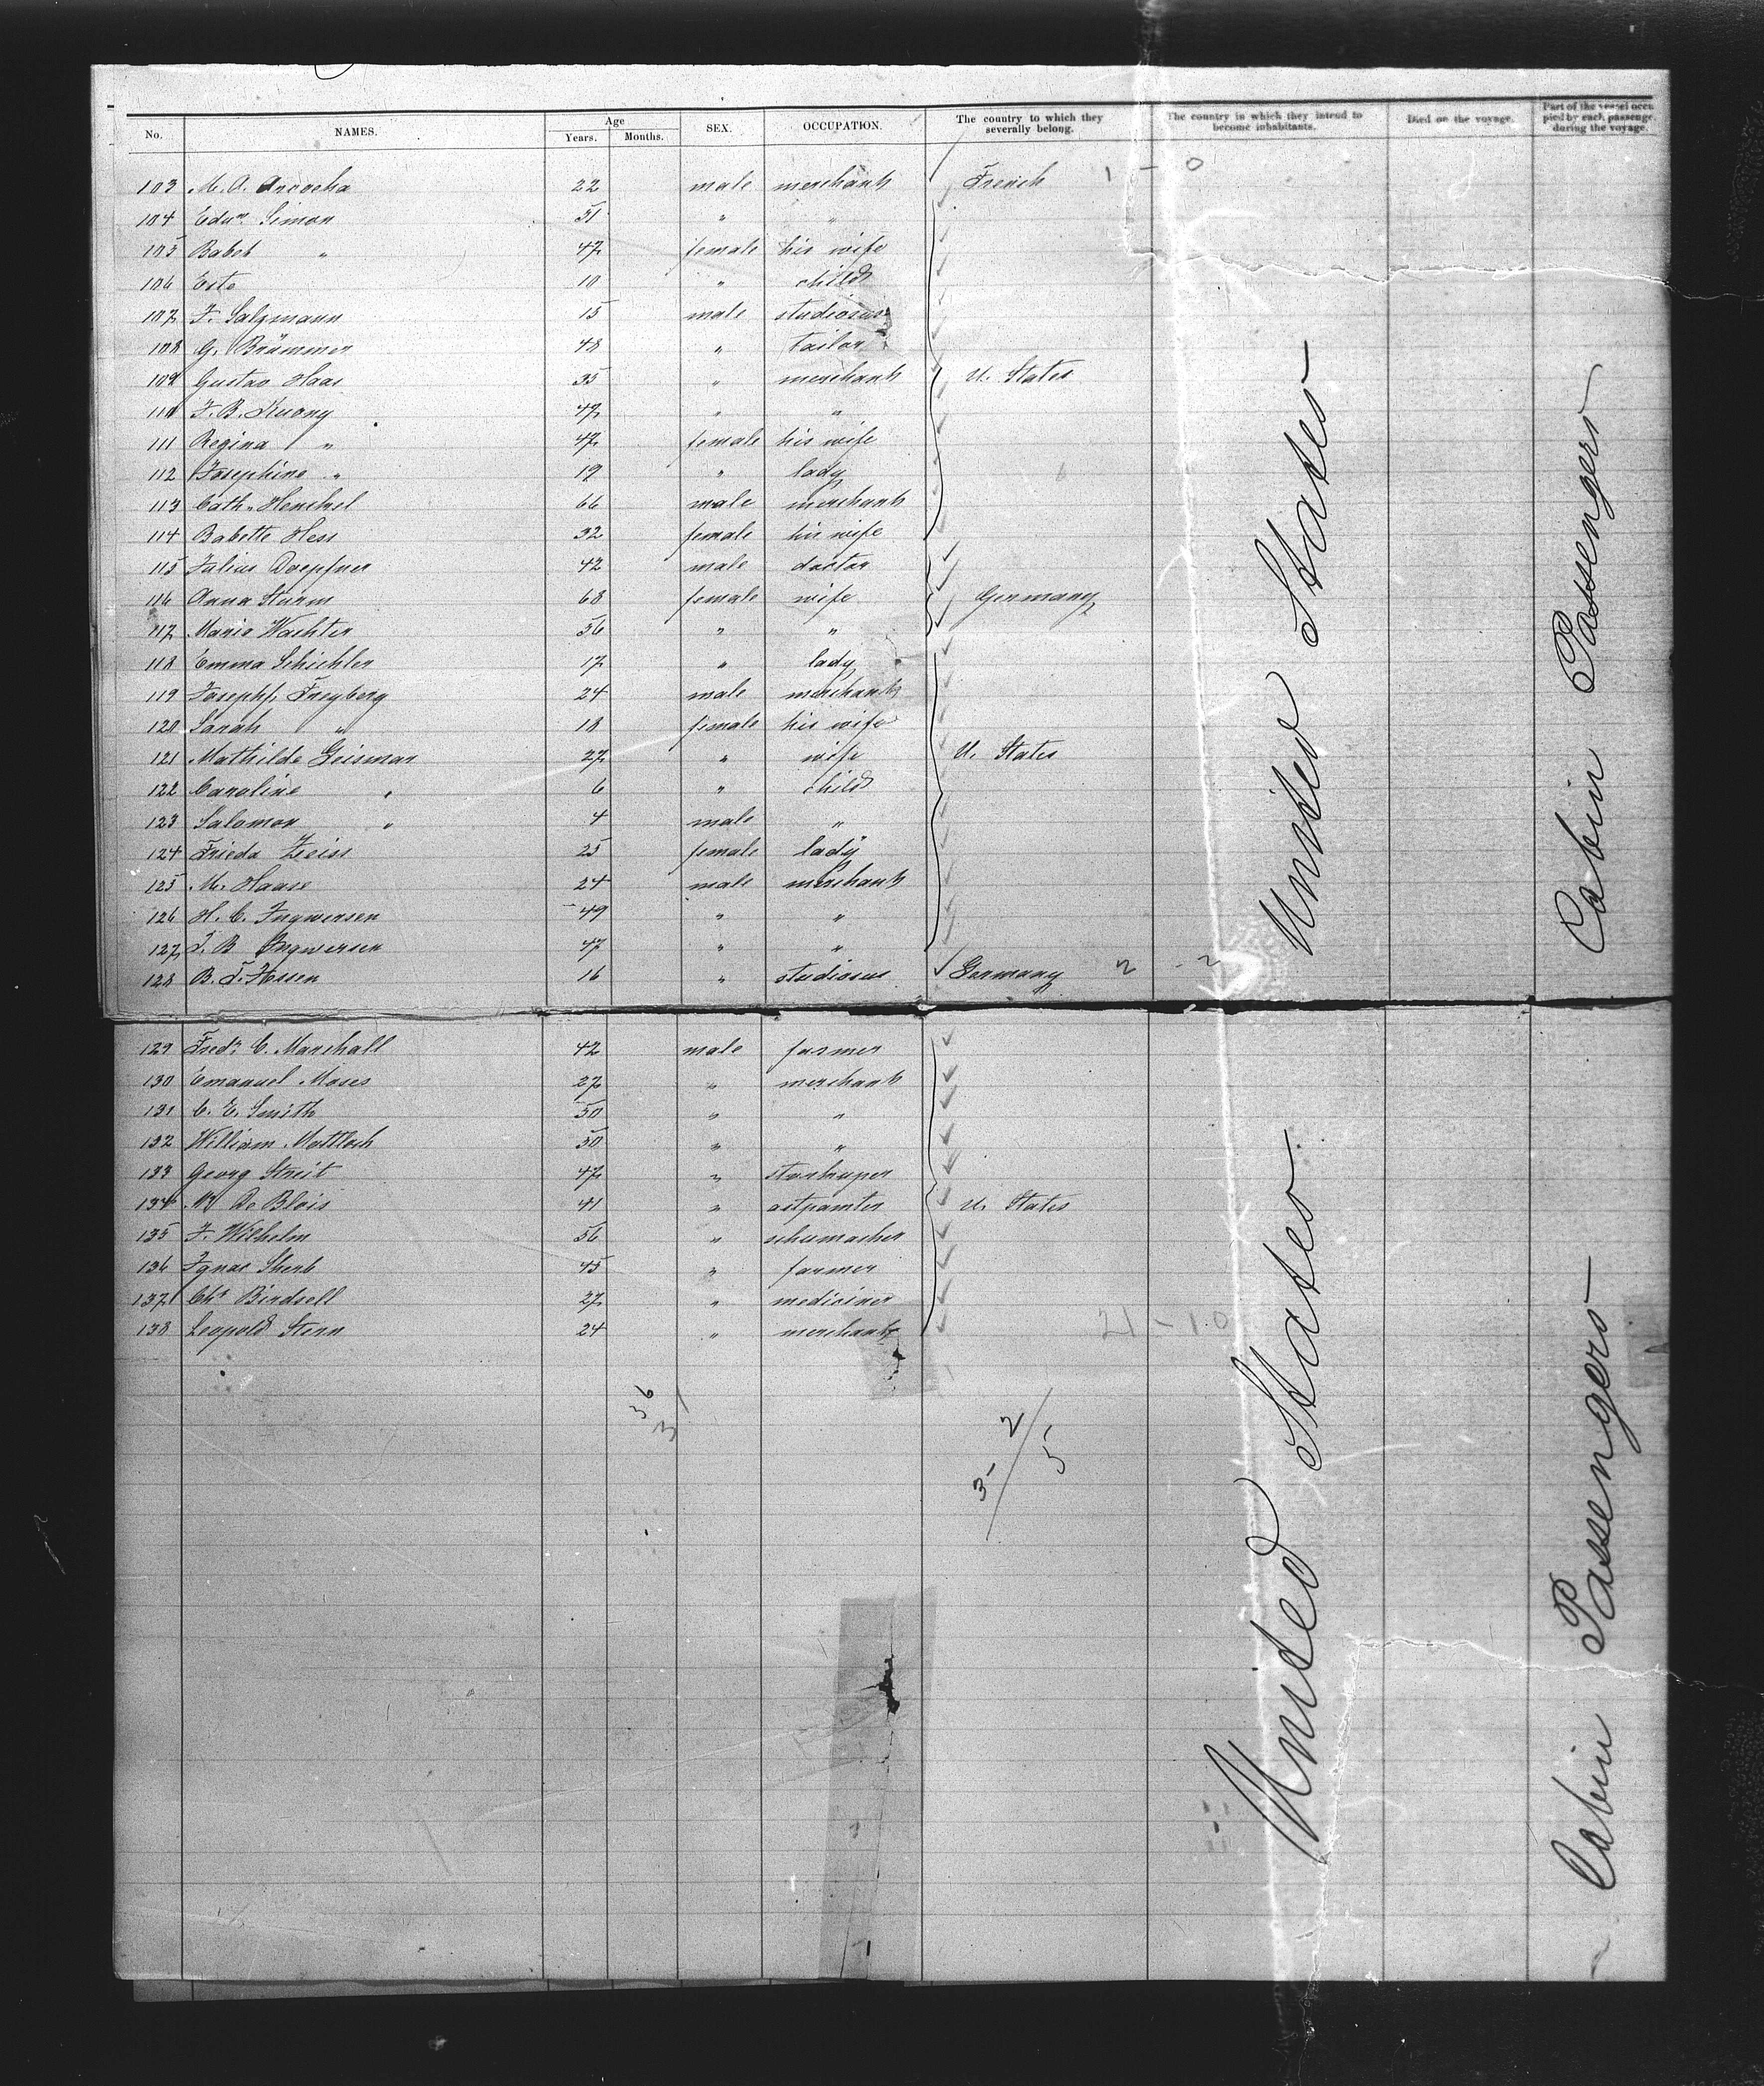 No. NAMES. Age Years. Months. SEX. OCCUPATION. The country to which they severally belong. The country in which they intend to become inhabitants. Died on the voyage. Part of the vessel occupied by each passenger during the voyage.
103 M. A. 22 male merchant French 1 - 0
104 Edw. Simon 51 " "
105 Babet " 47 female his wife
106 10 " child
107 F. Salzmann 15 male studiosus
108 G. Brümmer 48 " tailor
109 Gustav Haas 35 " merchant U. States
110 F. B. Kuony 47 " "
111 Regina " 47 female his wife
112 Josephine " 19 " lady
113 Cath. Henchel 66 male merchant
114 Babette Hess 32 female his wife
115 Julius Doepfner 42 male doctor
116 Anna Sturm 68 female wife Germany
117 Marie Wachter 56 " "
118 Emma Schichler 17 " lady
119 Joseph Freyberg 24 male merchant
120 Sarah " 18 female his wife
121 Mathilde Geismar 27 " wife U. States
122 Caroline " 6 " child
123 Salomon " 4 male "
124 Frieda Zeiss 25 female lady
125 M. Haase 24 male merchant
126 H. C. Ingwersen 49 " "
127 T. B. Ingwersen 47 " "
128 B. T. 16 " studiosus Germany 2 - 2
United States
Cabin Passengers
129 Fredr. C. Marshall 42 male farmer
130 Emanuel Moses 27 " merchant
131 C. E. Smith 50 " "
132 William Mattlach 50 " "
133 Georg Streit 47 "
134 Mr De Blois 41 " U. States
135 F. Wilhelm 56 " schumacher
136 Ignac 45 " farmer
137 Chs Birdsell 27 " mediciner
138 Leopold Stern 24 " merchant 21 - 10
36
31
2/5
35
United States
Cabin Passengers